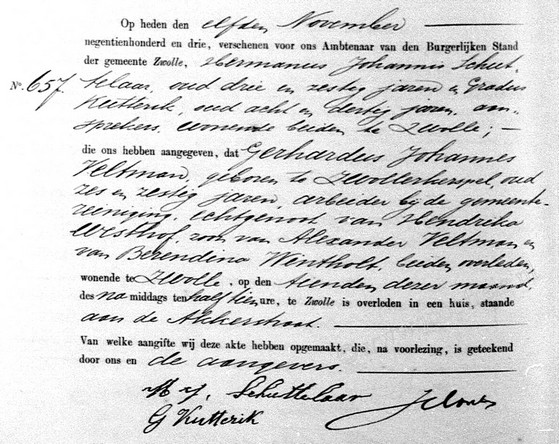 Op heden den elfden November
negentienhonderd en drie, verschenen voor ons Ambtenaar van den Burgerlijken Stand
der gemeente Zwolle, Hermanus Johannis Schut-
No. 657. telaar, oud drie en zestig jaren en Gradus
Kutterik, oud acht en dertig jaren, aan-
sprekers, wonende beiden te Zwolle; —
die ons hebben aangegeven, dat Gerhardus Johannes
Veltman, geboren te Zwollerkerspel, oud
zes en zestig jaren, arbeider bij de gemeente-
reiniging, echtgenoot van Hendrika
Westhof, zoon van Alexander Veltman en
van Berendina Wentholt, beiden overleden,
wonende te Zwolle, op den tienden dezer maand,
des namiddags ten half tien ure, te Zwolle is overleden in een huis, staande
aan de Akkerstraat.
Van welke aangifte wij deze akte hebben opgemaakt, die, na voorlezing, is geteekend
door ons en de aangevers.
H J. Schuttelaar
G Kutterik